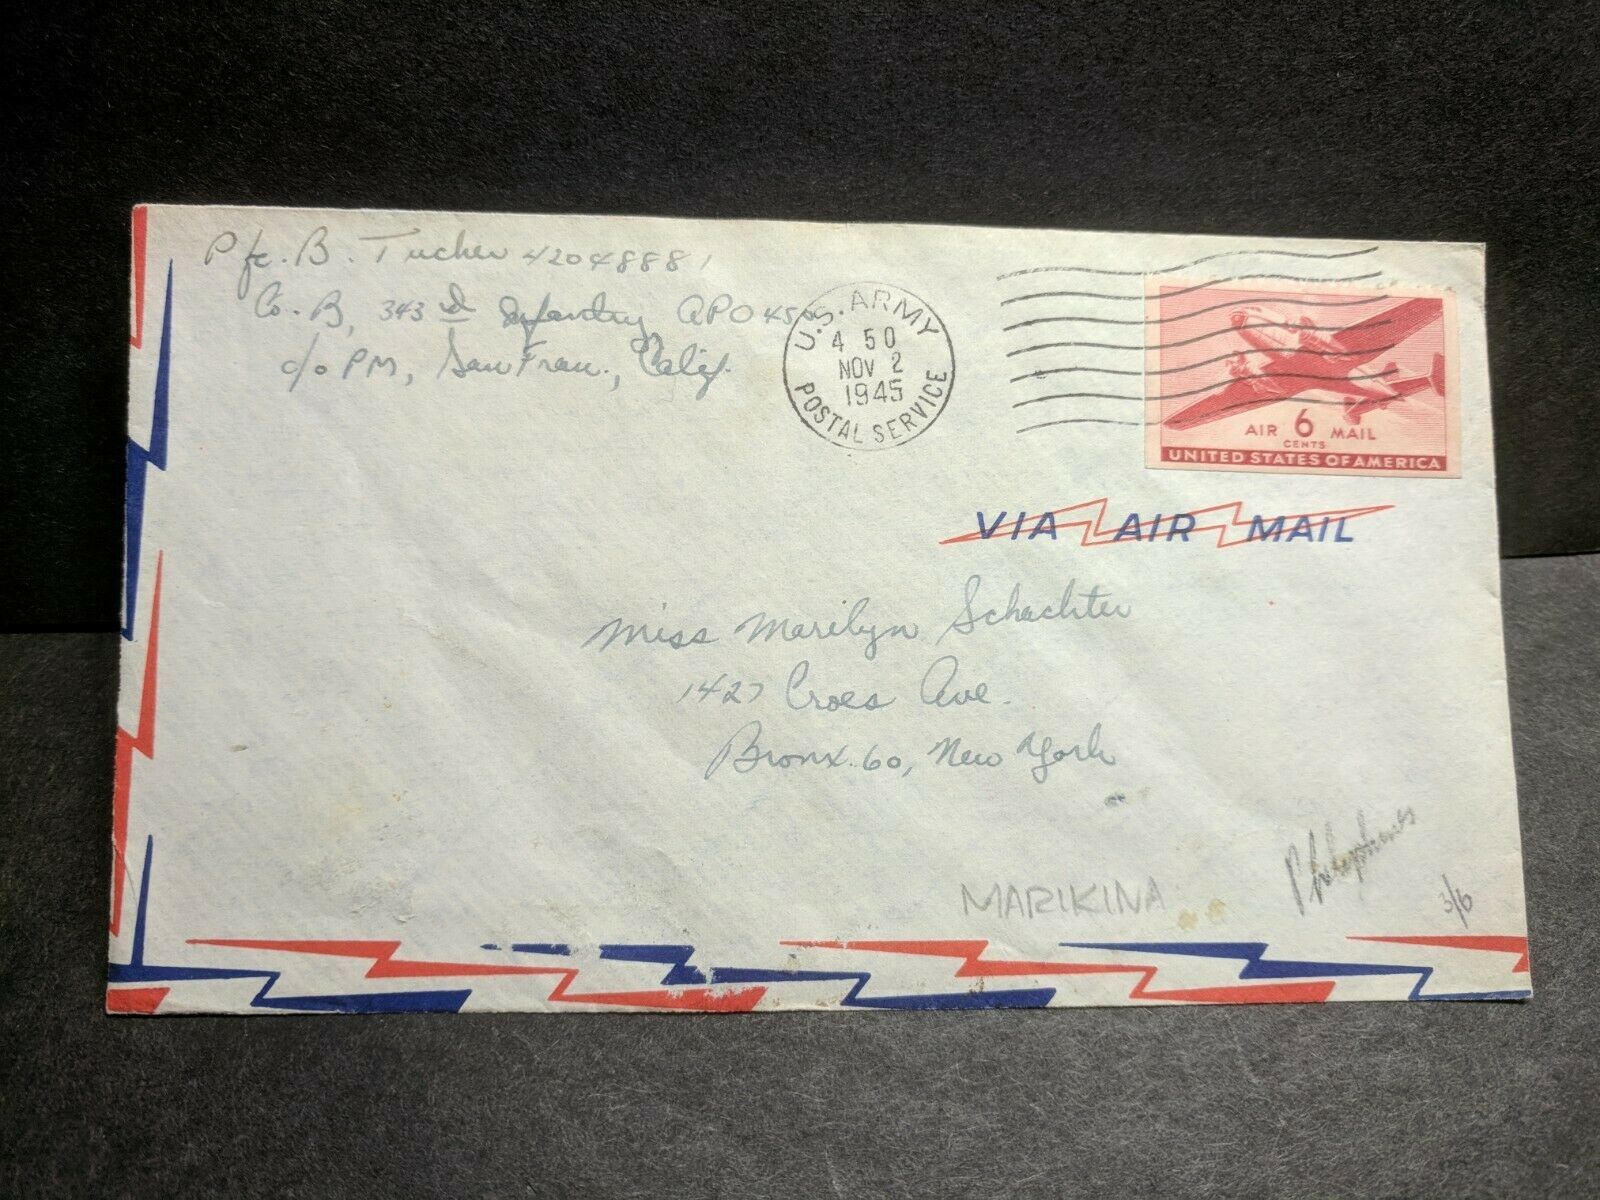 Pfc. B. Tucker 42048881
Co. B, 343rd Infantry, APO 450
c/o PM, San Fran., Calif.
U.S. ARMY
4 50
NOV 2
1945
POSTAL SERVICE
AIR 6 MAIL
CENTS
UNITED STATES OF AMERICA
VIA AIR MAIL
Miss Marilyn Schachter
1427 Croes Ave.
Bronx 60, New York
MARIKINA
3/6